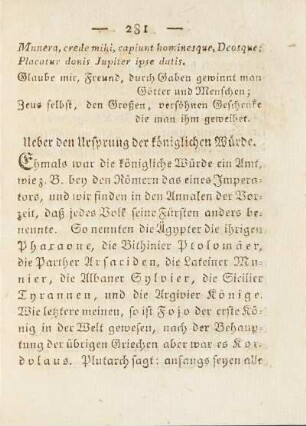 — 281 —
Munera, crede mihi, capiunt hominesque, Deosque;
Placatur donis Jupiter ipse datis.
Glaube mir, Freund, durch Gaben gewinnt man
Götter und Menschen;
Zeus selbst, den Großen, versöhnen Geschenke
die man ihm geweihet.
Ueber den Ursprung der königlichen Würde.
Ehmals war die königliche Würde ein Amt,
wie z. B. bey den Römern das eines Impera-
tors, und wir finden in den Annalen der Vor-
zeit, daß jedes Volk seine Fürsten anders be-
nennte. So nennten die Ägypter die ihrigen
Pharaone, die Bithinier Ptolomäer,
die Parther Arsaciden, die Lateiner Mu-
nier, die Albaner Sylvier, die Sicilier
Tyrannen, und die Argivier Könige.
Wie letztere meinen, so ist Fojo der erste Kö-
nig in der Welt gewesen, nach der Behaup-
tung der übrigen Griechen aber war es Kor-
dolaus. Plutarch sagt: anfangs seyen alle